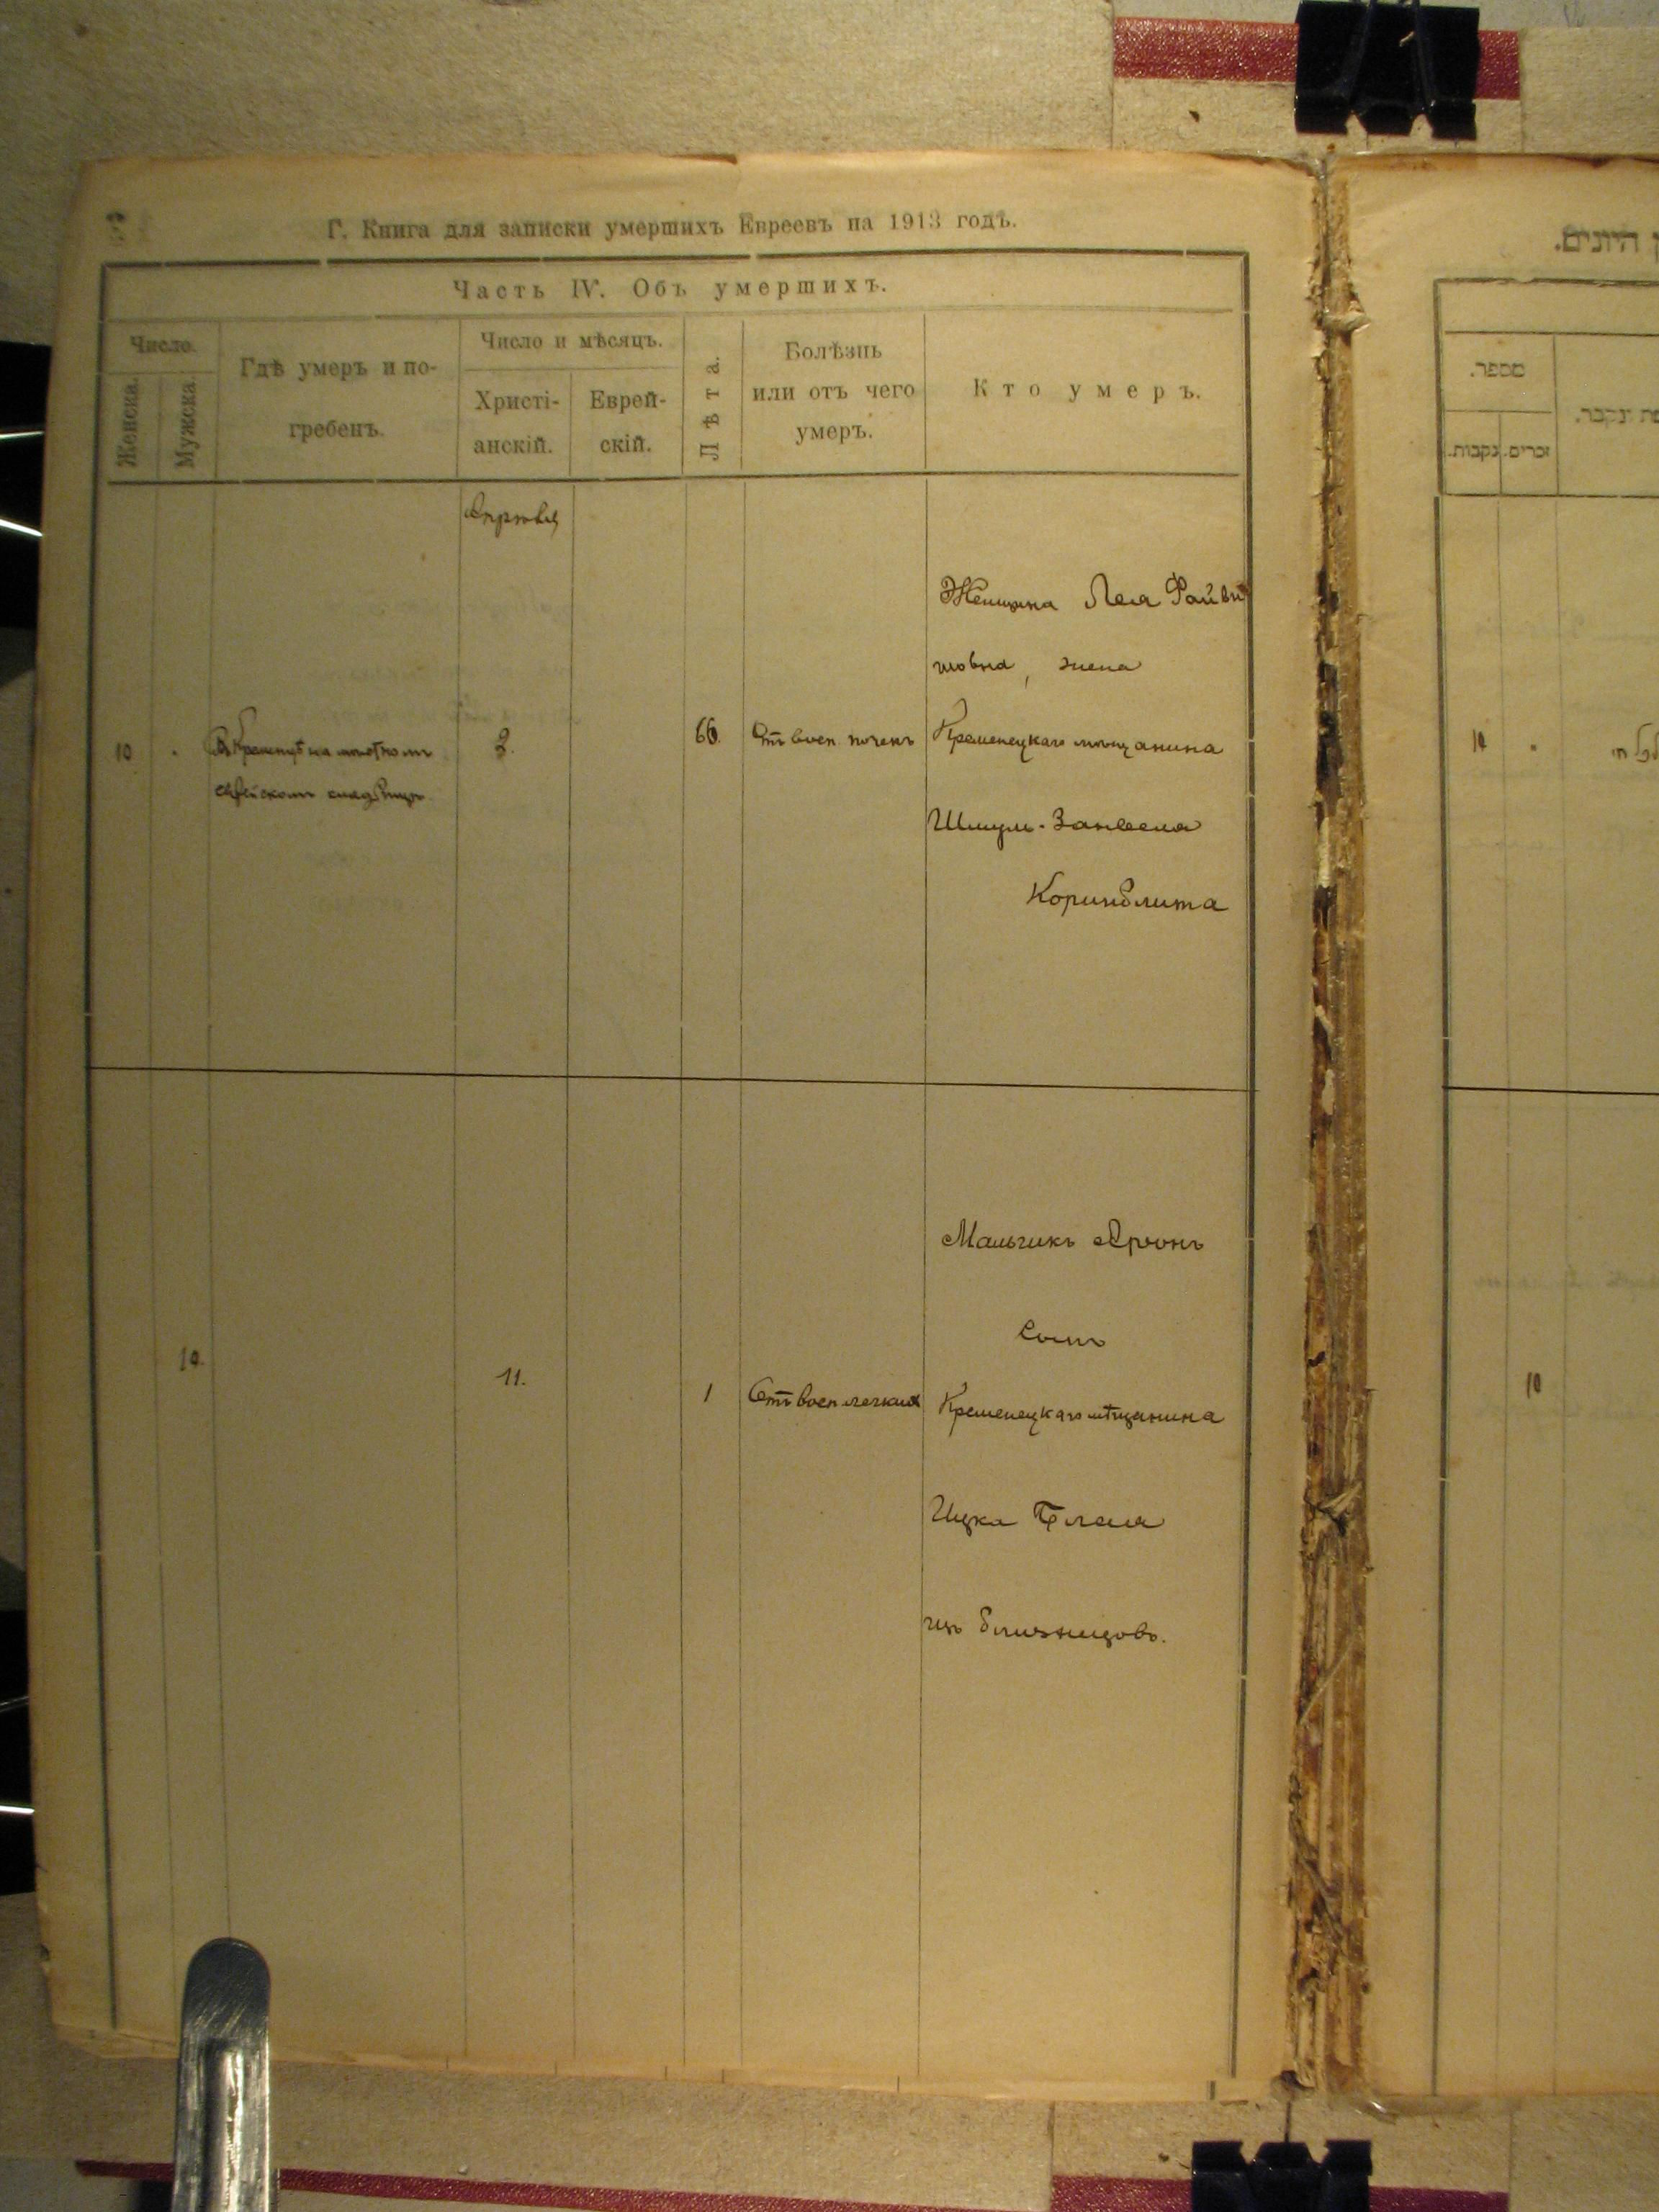 Г. Книга для записки умершихъ Евреевъ на 1913 годъ.
Часть IV. Объ умершихъ.
Число.
Женска.
Мужска.
Гдѣ умеръ и по-
гребенъ.
Число и мѣсяцъ.
Христі-
анскій.
Еврей-
скій.
Лѣта.
Болѣзнь
или отъ чего
умеръ.
Кто умеръ.
10
Въ Кременцѣ на мѣстномъ
еврейскомъ кладбищѣ
66.
Отъ восп. почекъ
Женщина Лея Файви
шовна, жена
Кременецкаго мѣщанина
Шмуль-Занвеля
Коринблита
10.
11.
1
Отъ восп. легкихъ
Мальчикъ Аронъ
сынъ
Кременецкаго мѣщанина
Ицка
изъ близнецовъ.
היונים.
מספר.
נקבות.
זכרים.
ונקבר.
10
10